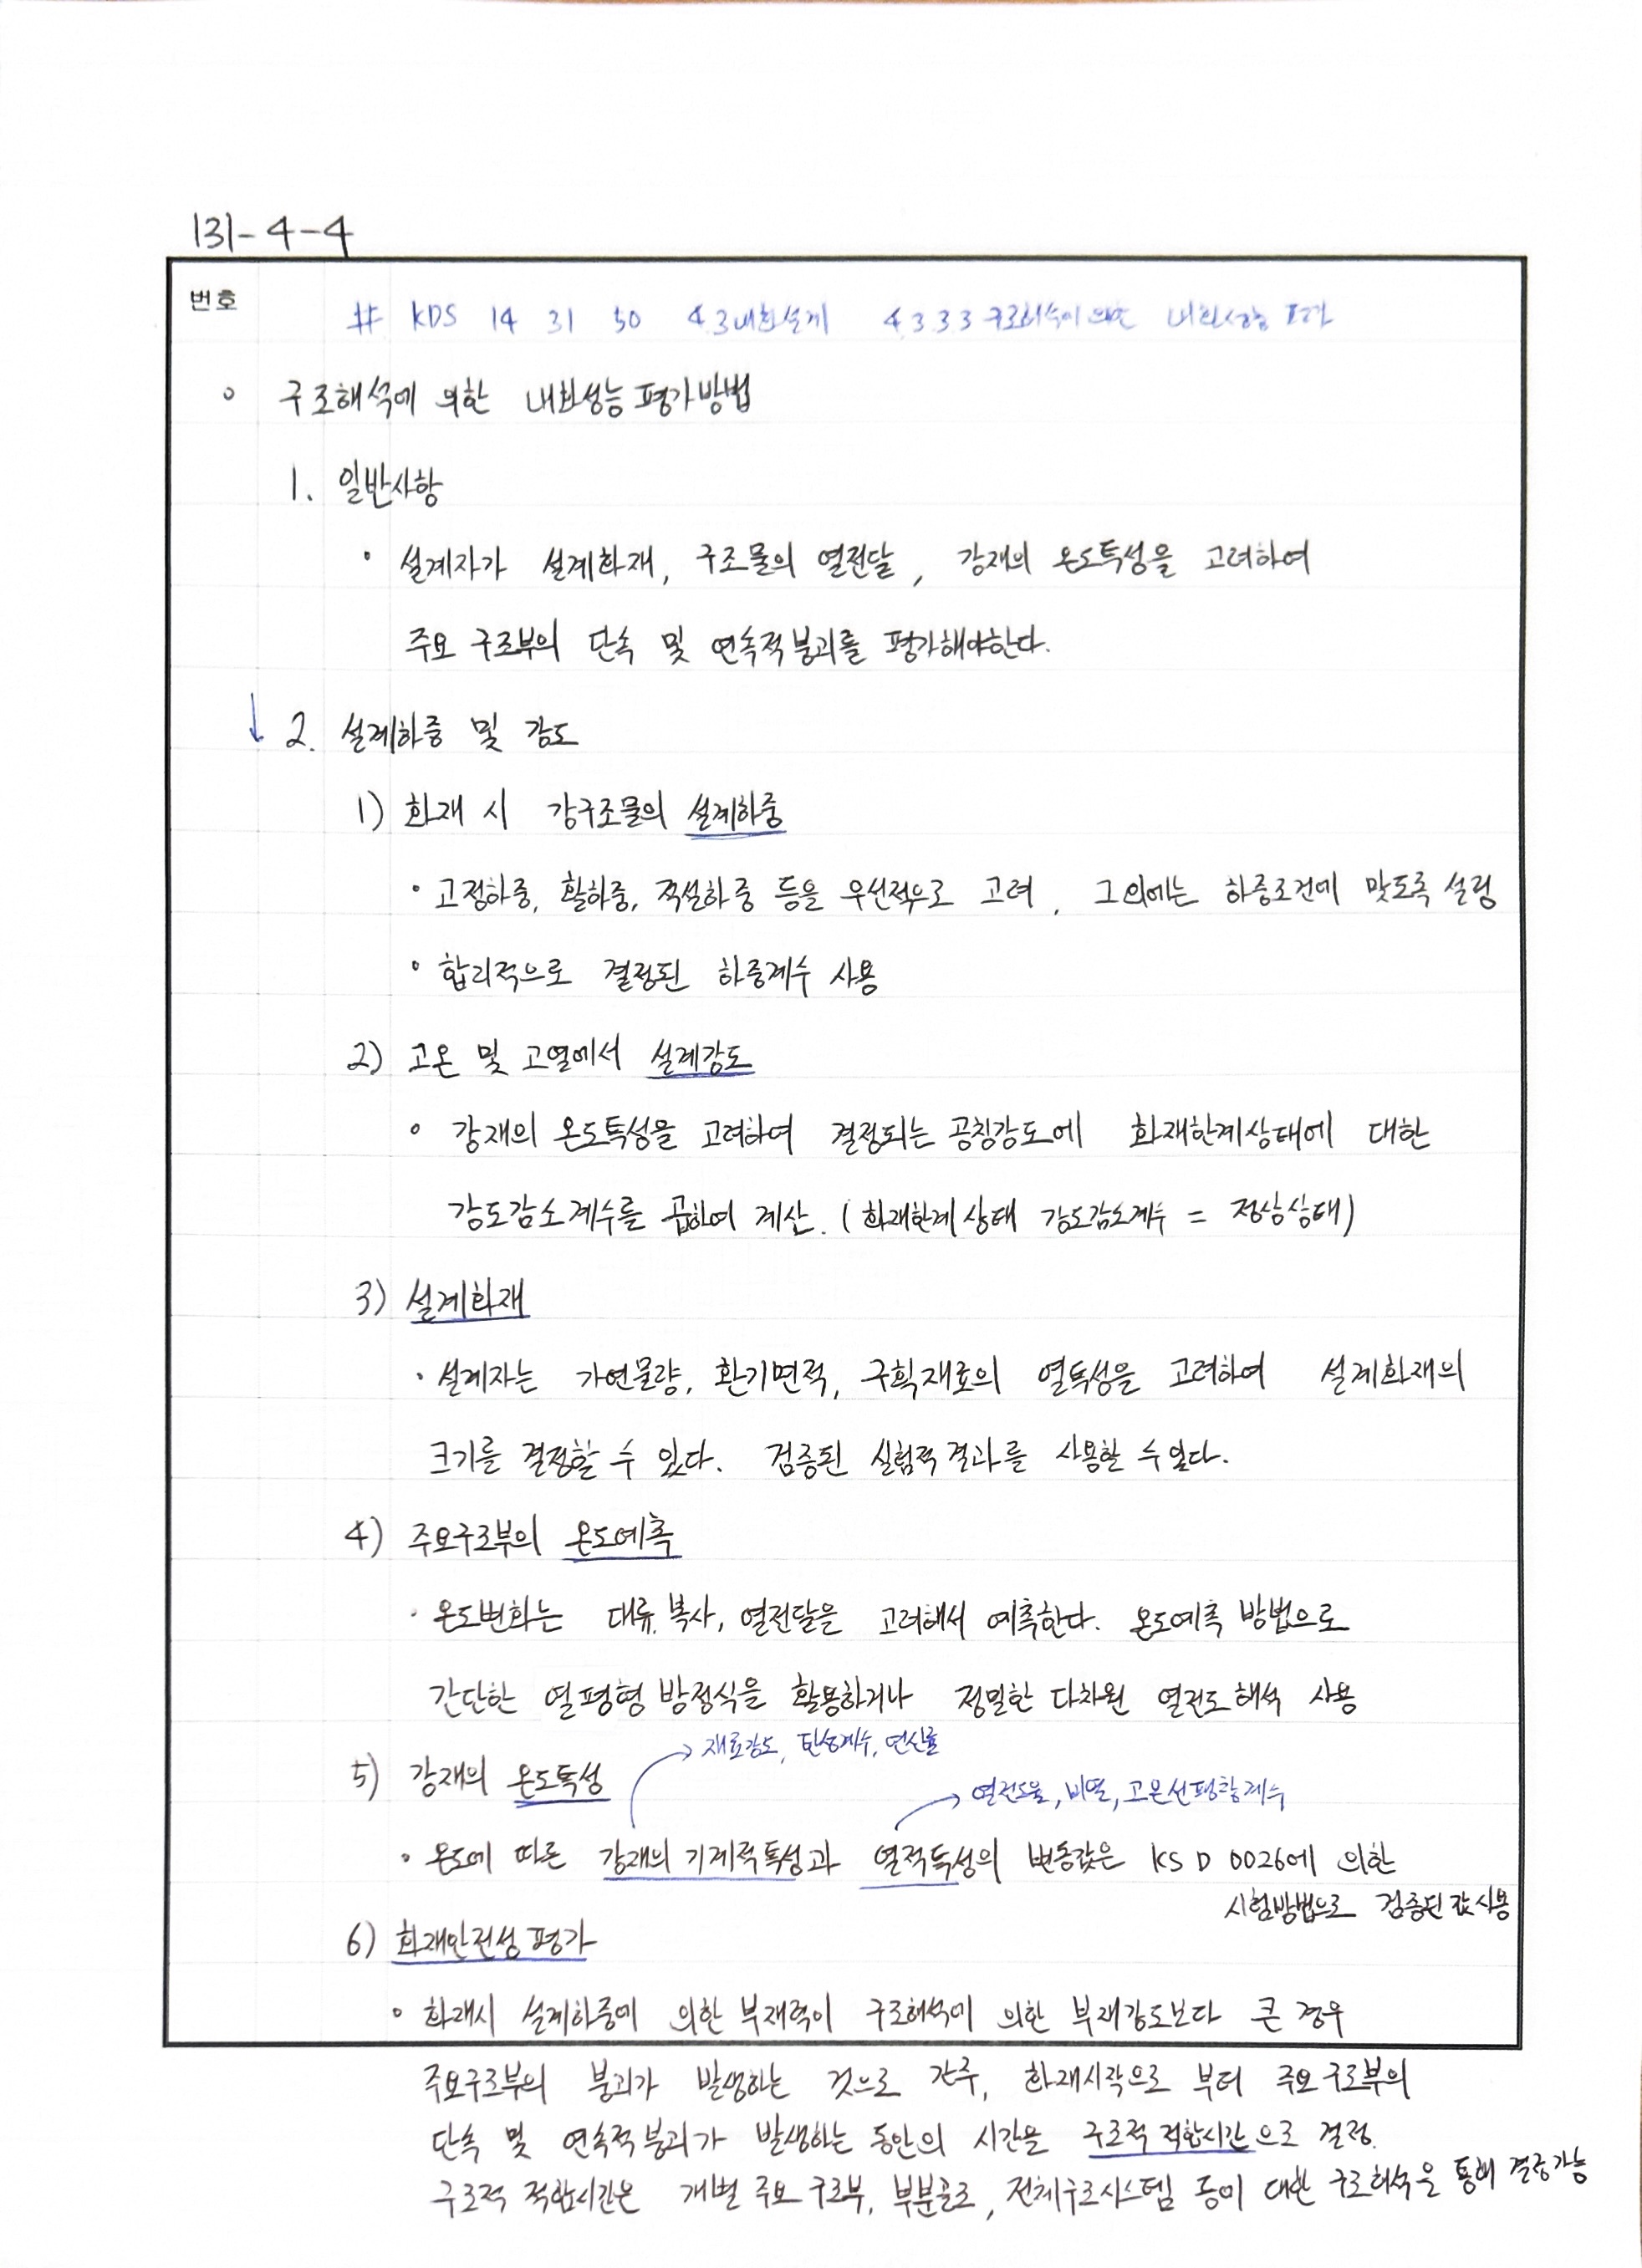 131-4-4
번호
# KDS 14 31 50 4.3 내화설계 4.3.3.3 구조해석에 의한 내화성능 평가
○ 구조해석에 의한 내화성능 평가방법
1. 일반사항
• 설계자가 설계화재, 구조물의 열전달, 강재의 온도특성을 고려하여
주요 구조부의 단속 및 연속적붕괴를 평가해야한다.
↓ 2. 설계하중 및 강도
1) 화재 시 강구조물의 설계하중
• 고정하중, 활하중, 적설하중 등을 우선적으로 고려, 그 외에는 하중조건에 맞도록 설정
• 합리적으로 결정된 하중계수 사용
2) 고온 및 고열에서 설계강도
• 강재의 온도특성을 고려하여 결정되는 공칭강도에 화재한계상태에 대한
강도감소계수를 곱하여 계산. (화재한계상태 강도감소계수 = 정상상태)
3) 설계화재
• 설계자는 가연물량, 환기면적, 구획재료의 열특성을 고려하여 설계화재의
크기를 결정할 수 있다. 검증된 실험적결과를 사용할 수 있다.
4) 주요구조부의 온도예측
• 온도변화는 대류, 복사, 열전달을 고려해서 예측한다. 온도예측 방법으로
간단한 열평형 방정식을 활용하거나 정밀한 다차원 열전도 해석 사용
→ 재료강도, 탄성계수, 연신률
5) 강재의 온도특성
→ 열전도율, 비열, 고온선팽창계수
• 온도에 따른 강재의 기계적특성과 열적특성의 변동값은 KS D 0026에 의한
시험방법으로 검증된 값 사용
6) 화재안전성평가
• 화재시 설계하중에 의한 부재력이 구조해석에 의한 부재강도보다 큰 경우
주요구조부의 붕괴가 발생하는 것으로 간주, 화재시작으로 부터 주요구조부의
단속 및 연속적붕괴가 발생하는 동안의 시간을 구조적 적합시간으로 결정.
구조적 적합시간은 개별 주요 구조부, 부분골조, 전체구조시스템 등에 대한 구조해석을 통해 결정가능